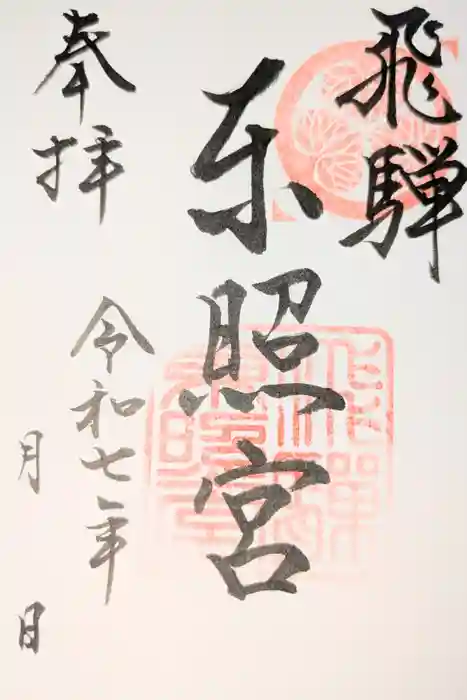 飛騨
東照宮
奉拝
令和七年
月 日